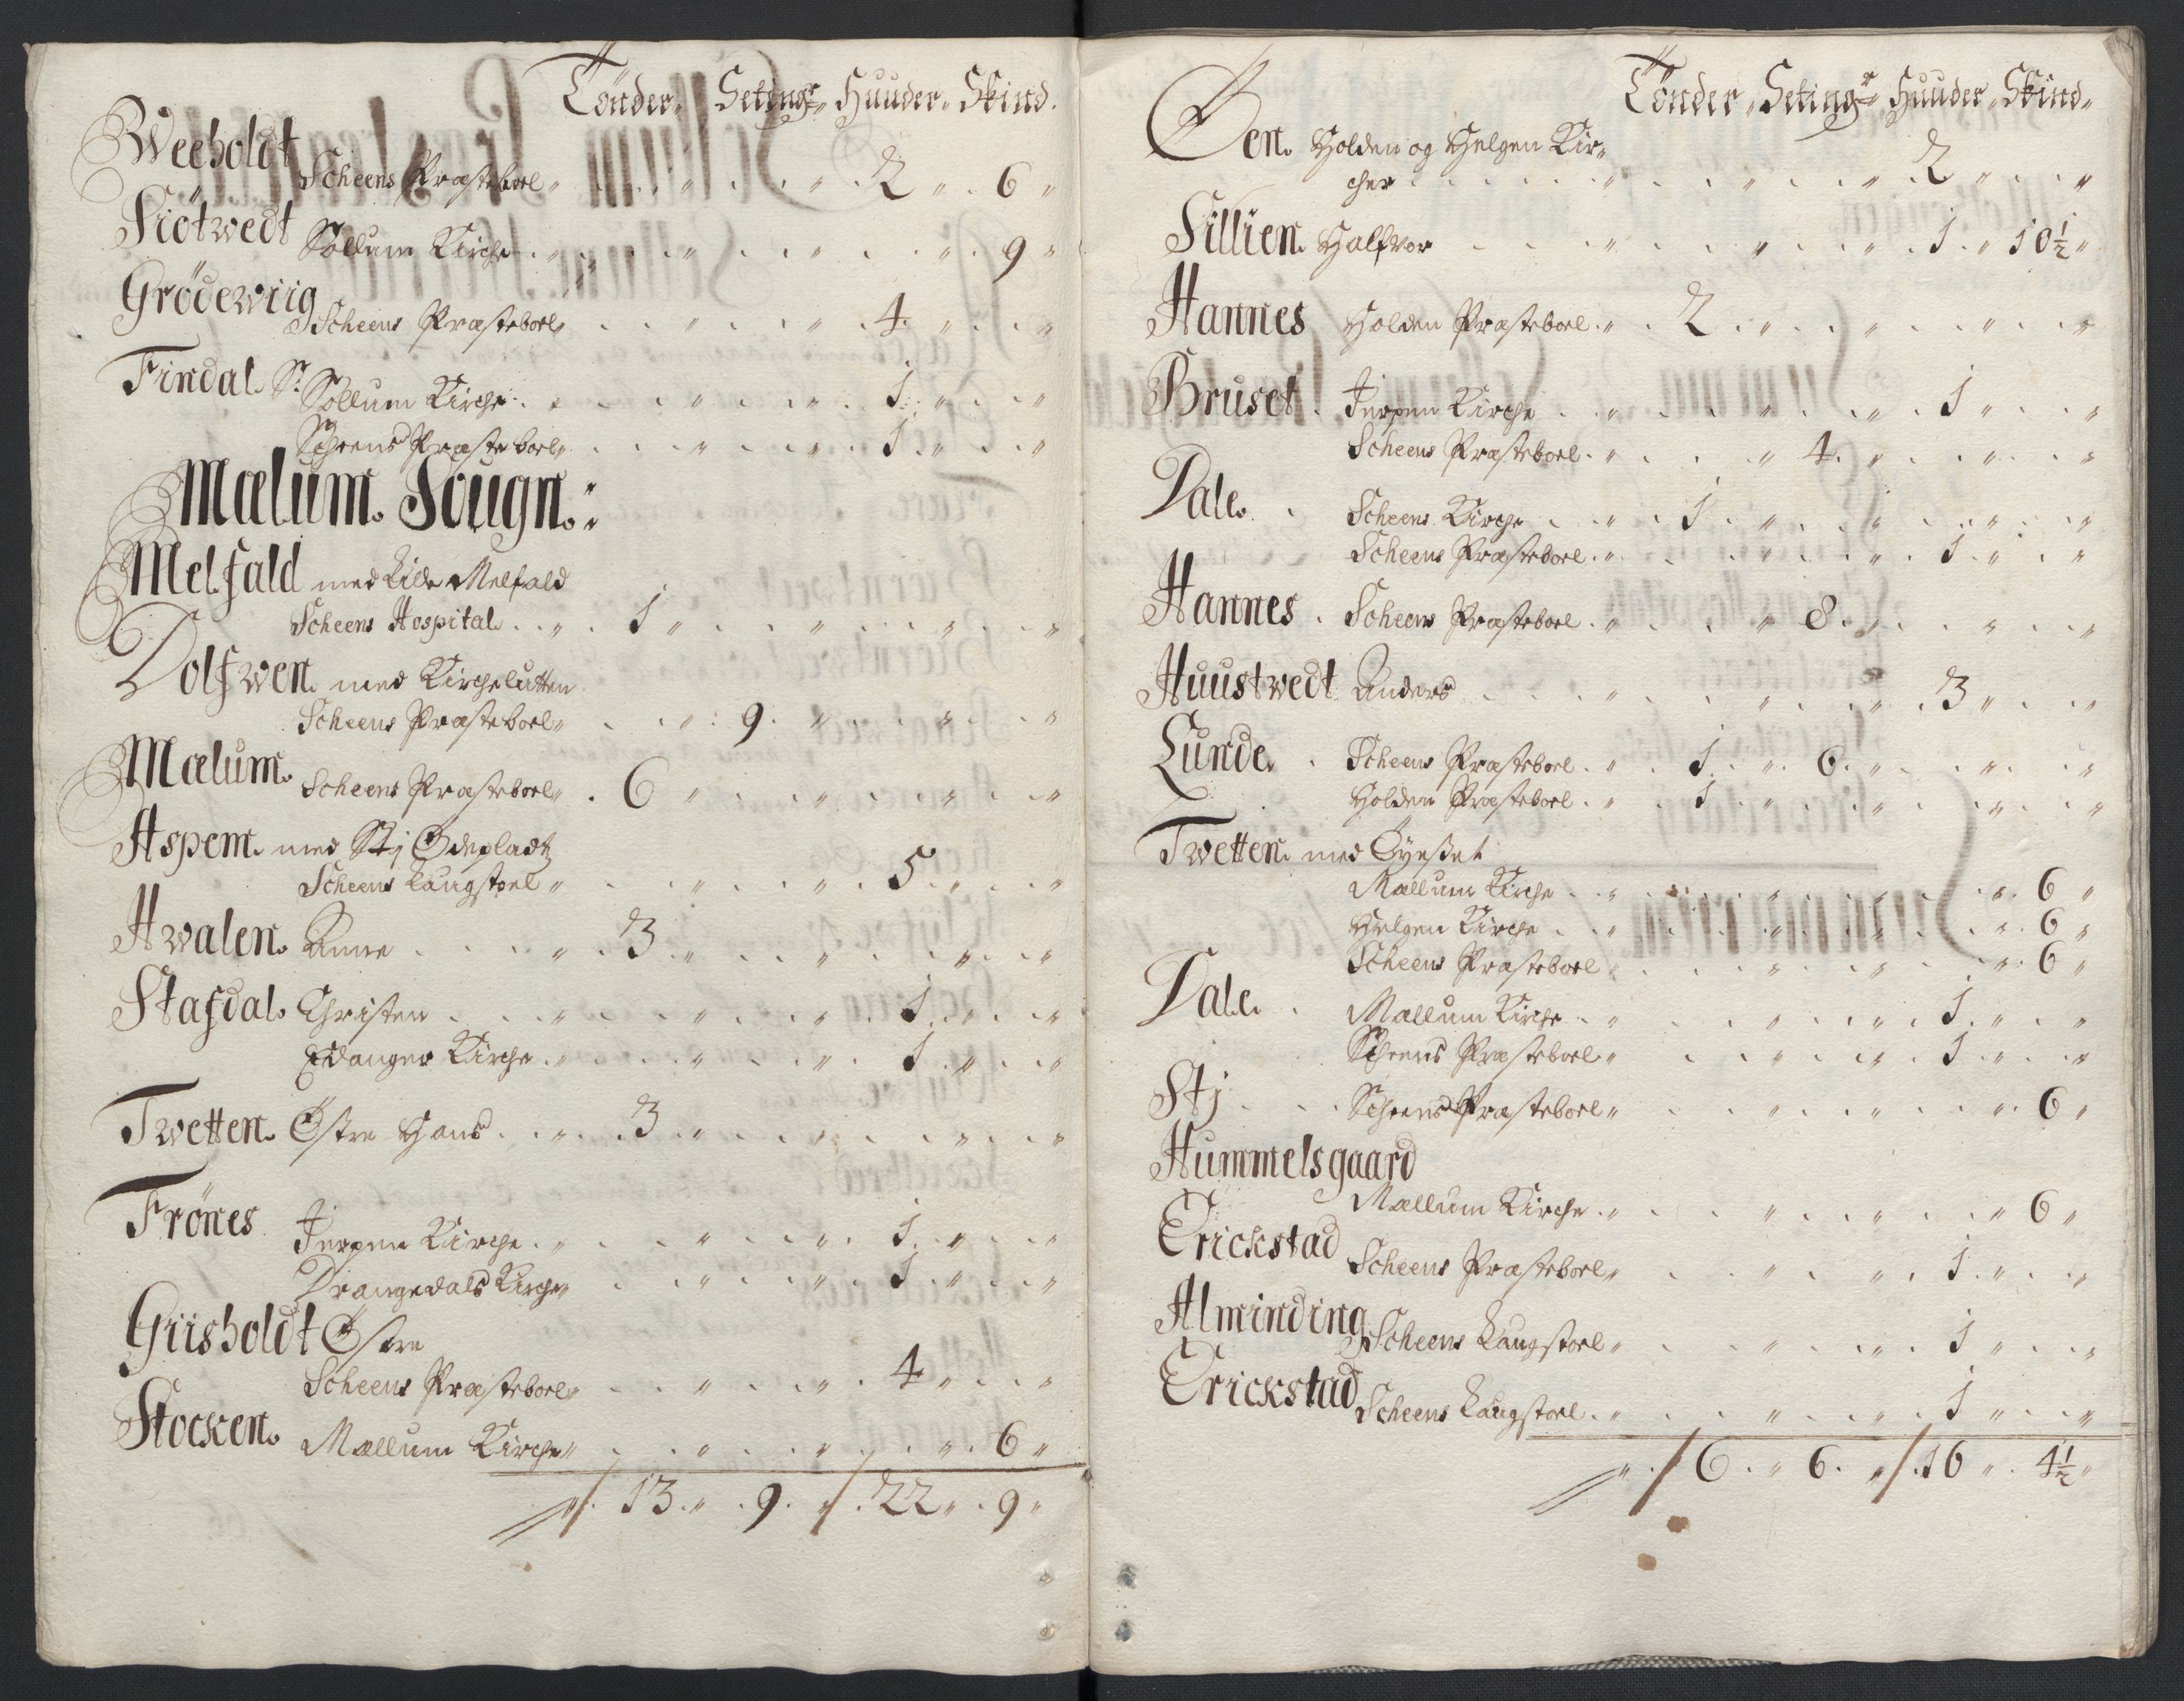 Tönder„ Setingr„ Huuder„ Skind.
Weeholdt
Scheens Præsteboel„ . . „ . . „ . 2 „ . 6 „
Siötwedt Sollum Kirche . . „ . . „ . . „ . . „ . 9 „
Grödewiig
Scheens Præsteboel„ . . „ . . „ . 4. „ . . „
Findal. Sr. Sollum Kirche . . . „ . . „ . 1. „ . . „
Scheens Præsteboel„ . . „ . . „ . 1. „ . . „
Mælum. Sougn.:
Melfald med Lille Melfald
Scheens Hospital . . „ . 1 „ . . „ . . „ . . „
Dolfwen. med Kirchelutten
Scheens Præsteboel„ . . „ . 9. „ . . „ . . „
Mælum. Scheens Præsteboel„ . 6 „ . . „ . . „ . . „
Aspem. med Stj Ödepladtz
Scheens Laugstoel „ . . „ . . „ . 5. „ . . „
Hwalen. Anne . . . „ . 3 „ . . „ . . „ . . „
Stafdal. Christen . . . „ . . „ . . „ . 1. „ . . „
Eidanger Kirche . „ . . „ . . „ . 1. „ . . „
Twetten. Östre Hans . . „ . 3. „ . . „ . . „ . . „
Frönes Jerpen Kirche . „ . . „ . . „ . 1. „ . . „
Drangedals Kirche„ . . „ . . „ . 1. „ . . „
Griisholdt Östre
Scheens Præsteboel„ . . „ . . „ . 4 „ . . „
Stocken. Mællum Kirche„ . . „ . . „ . . „ . 6 „
„/. 13. „ . 9. „/. 22 „ . 9 „
Tönder„ Setingr„ Huuder„ Skind„
Öen. Holden og Helgen Kir„
cher . . . . „ . . „ . . „ . 2 „ . . „
Sillien. Halfvor . . . „ . . „ . . „ . 1. „ 10½ „
Hannes Holden Præsteboel . „ . 2. „ . . „ . . „ . . „
Bruset . Jerpen Kirche . . „ . . „ . . „ . 1 „ . . „
Scheens Præsteboel . „ . . „ 4. „ . . „ . . „
Dale. . Scheens Kirche . . „ . 1. „ . . „ . . „ . . „
Scheens Præsteboel . „ . . „ . . „ . 1. „ . . „
Hannes . Scheens Præsteboel . „ . . „ 8. „ . . „ . . „
Huustwedt Anders . . . „ . . „ . . „ . 3 „ . . „
Lunde. . Scheens Præsteboel . „ . 1. „ . 6. „ . . „ . . „
Holden Præsteboel . „ . 1. „ . . „ . . „ . . „
Twetten. med Öyeset
Mællum Kirche . . „ . . „ . . „ . . „ . 6 „
Helgen Kirche . . „ . . „ . . „ . . „ . 6 „
Scheens Præsteboel „ . . „ . . „ . . „ . 6 „
Dale. . Mællum Kirche . „ . . „ . . „ . 1. „ . . „
Scheens Præsteboel „ . . „ . . „ . 1. „ . . „
Stj . . Scheens Præsteboel „ . . „ . . „ . . „ . 6 „
Hummelsgaard
Mællum Kirche . „ . . „ . . „ . . „ 6 „
Erickstad
Scheens Præsteboel„ . . „ . . „ . 1. „ . . „
Alminding
Scheens Laugstoel „ . . „ . . „ . 1 „ . . „
Erickstad
Scheens Laugstoel . „ . . „ . . „ . 1 „ . . „
„/ 6. „ 6. „/. 16 „ . 4½ „